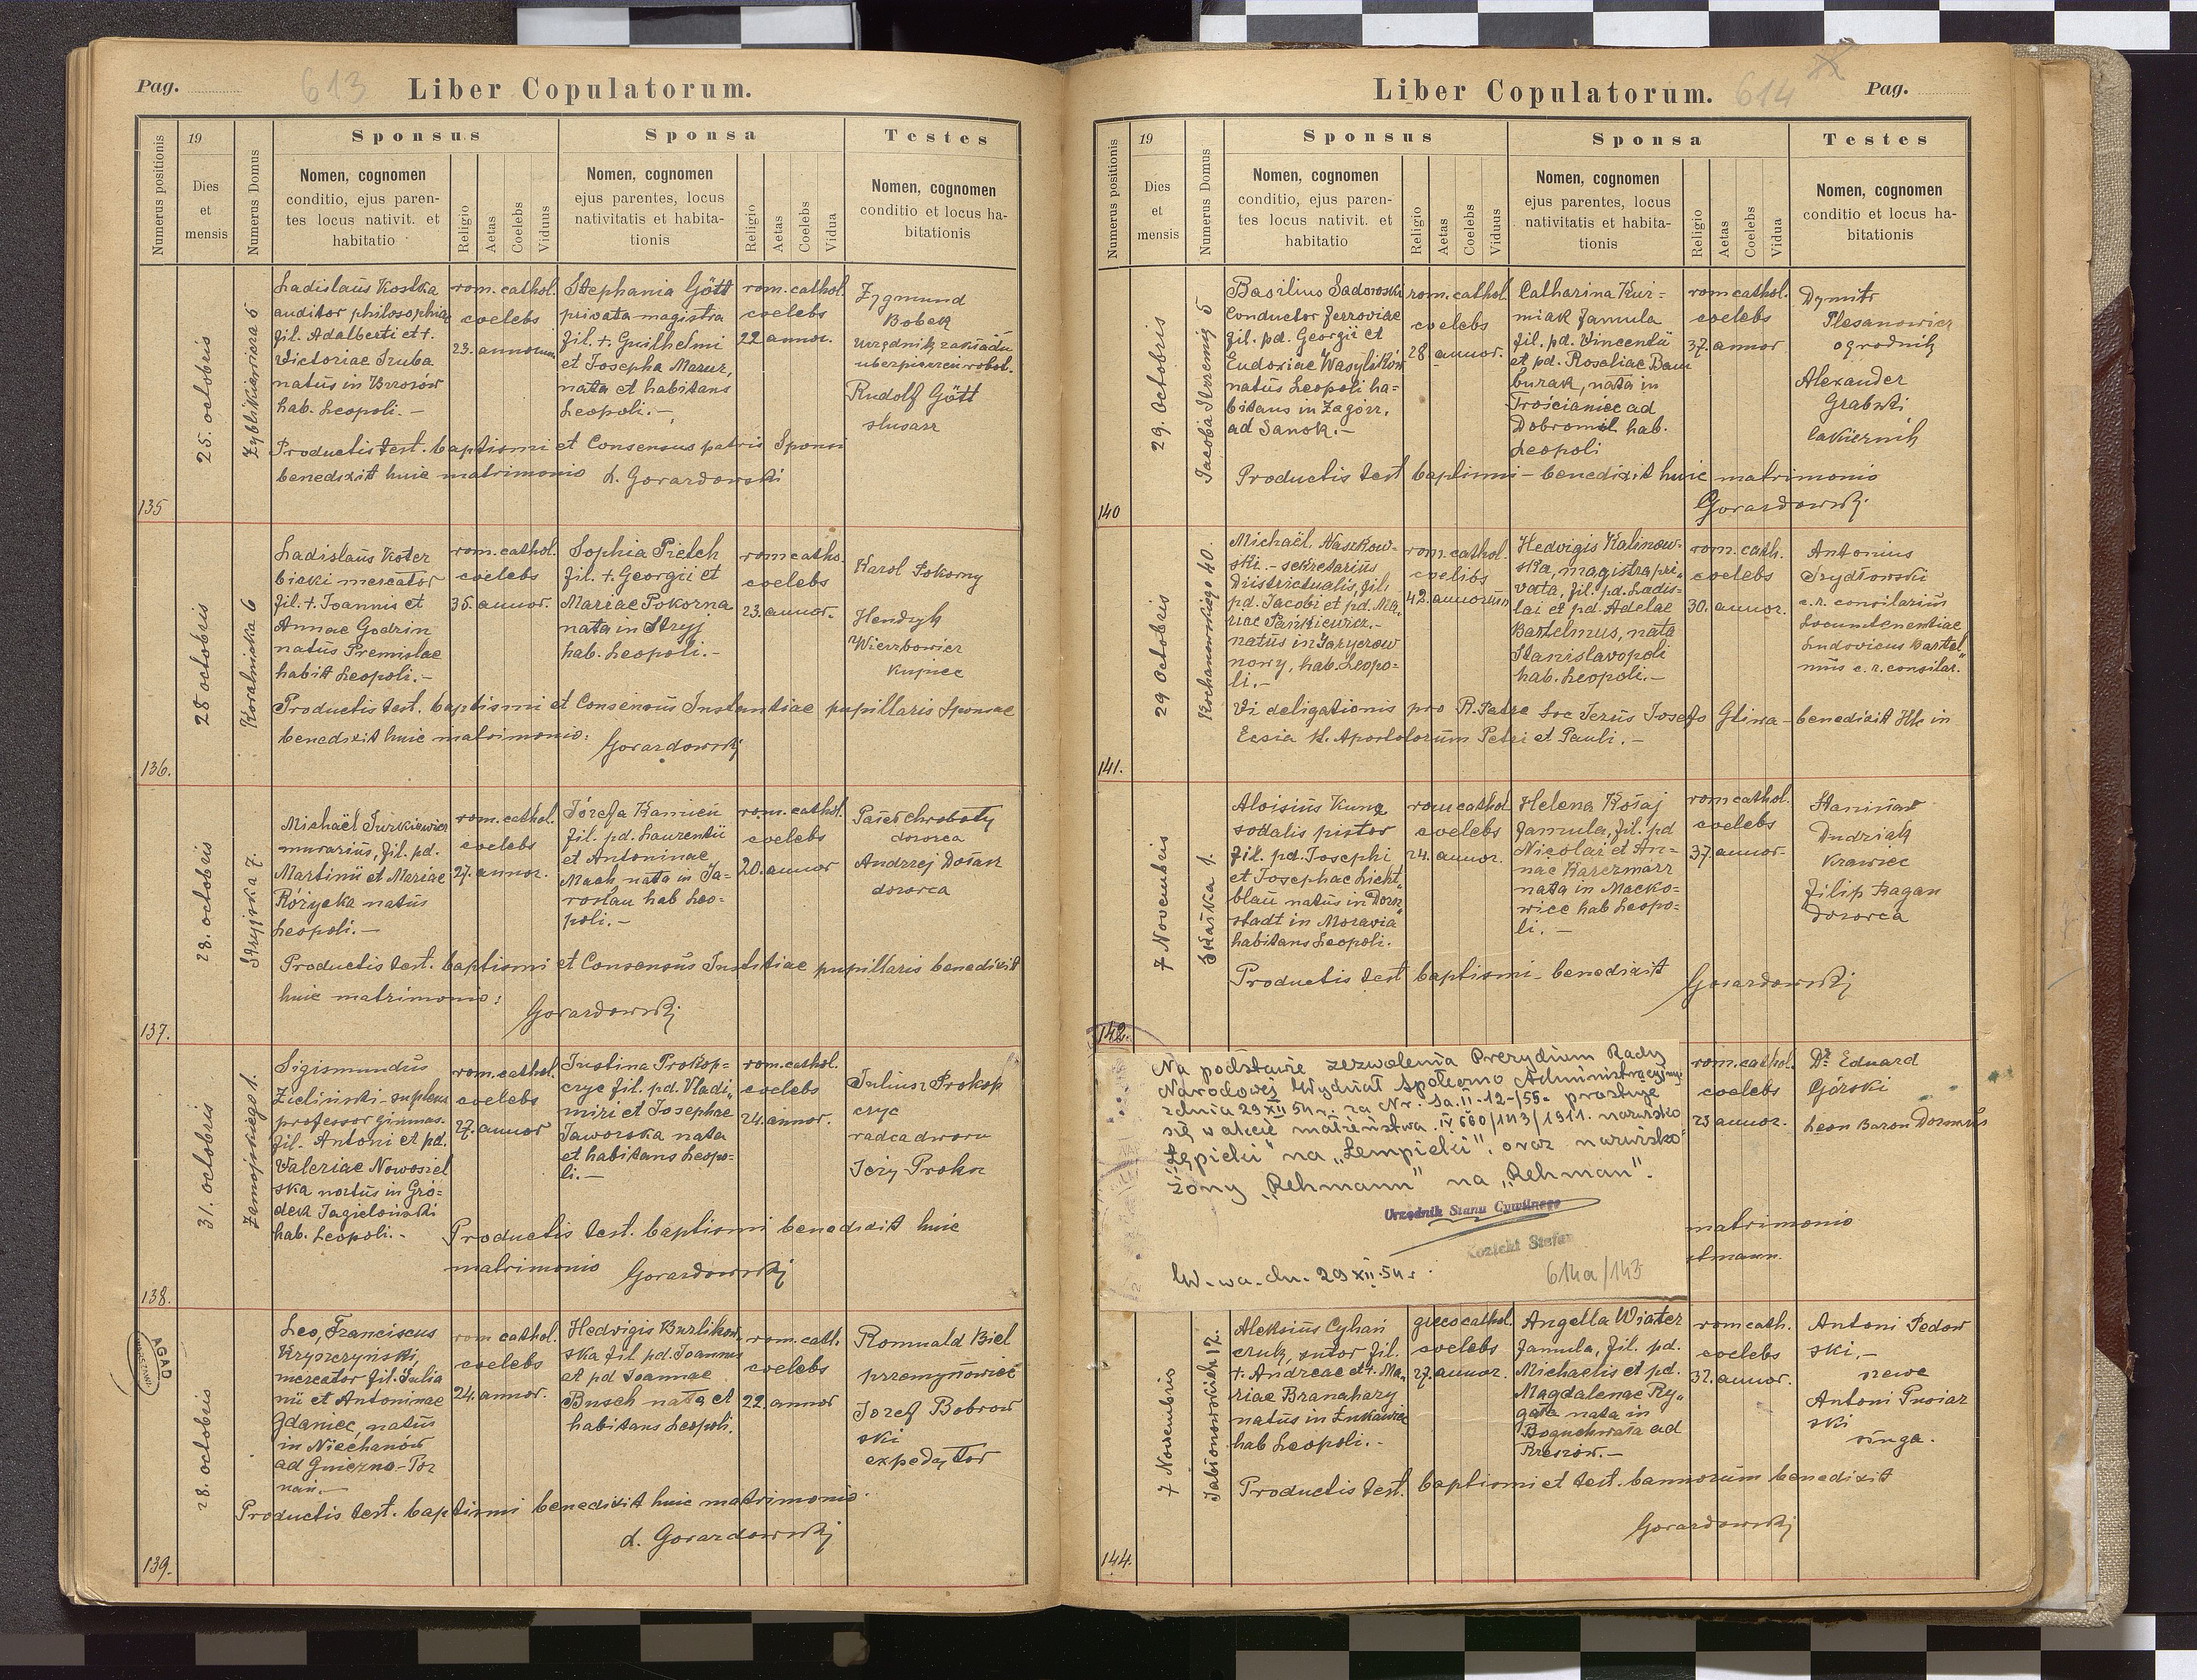 Pag.
613
Liber Copulatorum.
Numerus positionis
19
Dies
et
mensis
Numerus Domus
Sponsus
Nomen, cognomen
conditio, ejus paren-
tes locus nativit. et
habitatio
Religio
Aetas
Coelebs
Viduus
Sponsa
Nomen, cognomen
ejus parentes, locus
nativitatis et habita-
tionis
Religio
Aetas
Coelebs
Vidua
Testes
Nomen, cognomen
conditio et locus ha-
bitationis
135
25. octobris
Ladislaus Kostka
auditor philosophiae
fil. Adalberti et +.
Victoriae Truba
natus in Brzozów
hab. Leopoli. –
rom. cathol.
coelebs
23. annorum
Stephania Gött
privata magistra
fil. +. Guilhelmi
et Josepha Mazur,
nata et habitans
Leopoli. –
rom. cathol.
coelebs
22 annor.
Zygmund
Bobek
urzędnik zakładu
ubezpieczeń robot.
Rudolf Gött
slusarz
Productis test. baptismi et Consensus patris Sponsi
benedixit huic matrimonio d. Gorazdowski
136.
28 octobris
Koralnicka 6
Ladislaus Koter
bicki mercator
fil. +. Joannis et
Annae Godzin
natus Premislae
habit Leopoli. –
rom. cathol.
coelebs
35. annor.
Sophia Pietch
fil. +. Georgii et
Mariae Pokorna
nata in Stryj
hab. Leopoli. –
rom catho.
coelebs
23. annor.
Karol Pokorny
Hendryk
Wierzbowicz
kupiec
Productis test. baptismi et Consensus Instantiae pupillaris Sponsae
benedixit huic matrimonio:
Gorazdowski
137.
28. octobris
Stryjska 7.
Michaël Turkiewicz
murarius, fil. pd.
Martinii et Mariae
Różycka natus
Leopoli. –
rom. cathol.
coelebs
27. annor.
Józefa Kamień
fil. pd. Laurentii
et Antoninae
Mach nata in Ja-
roslau hab Leo-
poli. –
rom. cathol.
coelebs
20. annor
Paweł Chrobaty
dozorca
Andrzej
dozorca
Productis test. baptismi et Consensus Institiae pupillaris benedixit
huic matrimonio:
Gorazdowski
138.
31. octobris
Zamojskiego 1.
Sigismundus
Zieliński – suplens
professor gimnas.
fil. Antoni et pd.
Valeriae Nowosiel
ska natus in Gró-
dek Jagieloński
hab. Leopoli. –
rom. cathol.
coelebs
27. annor
Justina Prokop-
czyc fil. pd. Vladi-
miri et Josephae
Jaworska nata
et habitans Leopo-
li. –
rom. cathol.
coelebs
24. annor.
Juliusz Prokop
czyc
radca dworu
Jerzy Prohn
Productis test. baptismi benedixit huic
matrimonio Gorazdowski
AGAD
139.
28. octobris
Leo, Franciscus
Kryszczyński,
mercator fil. Julia
nii et Antoninae
Gdaniec, natus
in Niechanów
ad Gniezno – Poz
nań. –
rom cathol.
coelebs
24. annor.
Hedvigis Burlikow
ska fil pd. Joannis
et pd Joannae
Busch nata et
habitans Leopoli.
rom. cath.
coelebs
22. annor
Romuald Biel
przemysłowiec
Jozef Bobrow
ski
expedytor
Productis test. baptismi benedixit huic matrimonio.
d. Gorazdowski
Liber Copulatorum.
614
Pag.
Numerus positionis
19
Dies
et
mensis
Numerus Domus
Sponsus
Nomen, cognomen
conditio, ejus paren-
tes locus nativit. et
habitatio
Religio
Aetas
Coelebs
Viduus
Sponsa
Nomen, cognomen
ejus parentes, locus
nativitatis et habita-
tionis
Religio
Aetas
Coelebs
Vidua
Testes
Nomen, cognomen
conditio et locus ha-
bitationis
140
29. Octobris
Basilius Sadowski
conductor ferroviae
fil. pd. Georgii et
Eudoxiae Wasylków
natus Leopoli ha-
bitans in Zagórz,
ad Sanok. –
rom. cathol
coelebs
28 annor.
Catharina Kur=
miak famula
fil. pd. Vincentii
et pd. Rosaliae Bam
burak, nata in
Trościaniec ad
Dobromil hab.
Leopoli
rom cathol.
coelebs
37. annor
Dymitr
Plesanowicz
ogrodnik
Alexander
Grabski
lakiernik
Productis test baptismi – benedixit huic matrimonio
Gorazdowski
141.
29 Octobris
Kochanowskiego 40.
Michaël Naszkow-
ski. – sekretarius
Districtualis, fil.
pd. Jacobi et pd. Ma-
riae Pankiewicz. –
natus in Jarycrow
nowy, hab. Leopo-
li. –
rom. cathol
coelibs
42. annorum
Hedvigis Kalinow-
ska, magistra pri-
vata, fil. pd. Ladis-
lai et pd. Adelae
Bartelmus, nata
Stanislavopoli
hab. Leopoli. –
rom. cath.
coelebs
30. annor.
Antonius
Szydłowski
c.r. consilarius
Locumtenentiae
Ludovicus Bartel-
mus c.r. consilar.
Vi deligationis pro R. Patre Soc Jezus Josefo Gliwa – benedixit Hle in
Eccsia St. Apostolorum Petri et Pauli. –
142.
7 Novembris
Skałka 1.
Aloisius Kunz
sodalis pistor
fil. pd. Josephi
et Josephae Licht-
blau natus in Dorn
stadt in Moravia
habitans Leopoli.
rom cathol
coelebs
24. annor.
Helena Kosaj
famula, fil. pd
Nicolai et An-
nae Karczmarz
nata in Macko-
wice hab Leopo-
li. –
rom cathol.
coelebs
37. annor.
Stanisław
Dudziak
krawiec
Filip Kagan
dozorca
Productis test baptismi – benedixit
Gorazdowski
Na podstawie zezwolenia Prezydium Rady
Narodowej Wydział Społeczno Administracyjny
z dnia 29 XII 54 r. za Nr. Sa.II-12-/55- prostuje
się w akcie małżeństwa IV 660/143/1911. nazwisko
"Łępicki" na "Łempicki" oraz nazwisko
żony "Rehmann" na "Rehman".
Urzędnik Stanu Cywilnego
Kozicki Stefan
W-wa. dn. 29 XII 54 r.
614a/143
rom. cathol.
coelebs
23 annor.
Dr. Eduard
Górski
Leon Baron
matrimonio
144.
7 Novembris
Jabłonowskich 12.
Aleksius Cyhań
czuk, sutor fil.
+. Andreae et +. Ma-
riae Branahary
natus in Łukawice
hab Leopoli. –
greco cathol.
coelebs
27. annor.
Angella Wiater
famula, fil. pd.
Michaelis et pd.
Magdalenae Ry-
gała nata in
Boguchwała ad
Rzeszów. –
rom cath.
coelebs
32. annor.
Antoni Fedow
ski, –
szewc
Antoni
ski
sługa.
Productis test. baptismi et test. bannorum benedixit
Gorazdowski